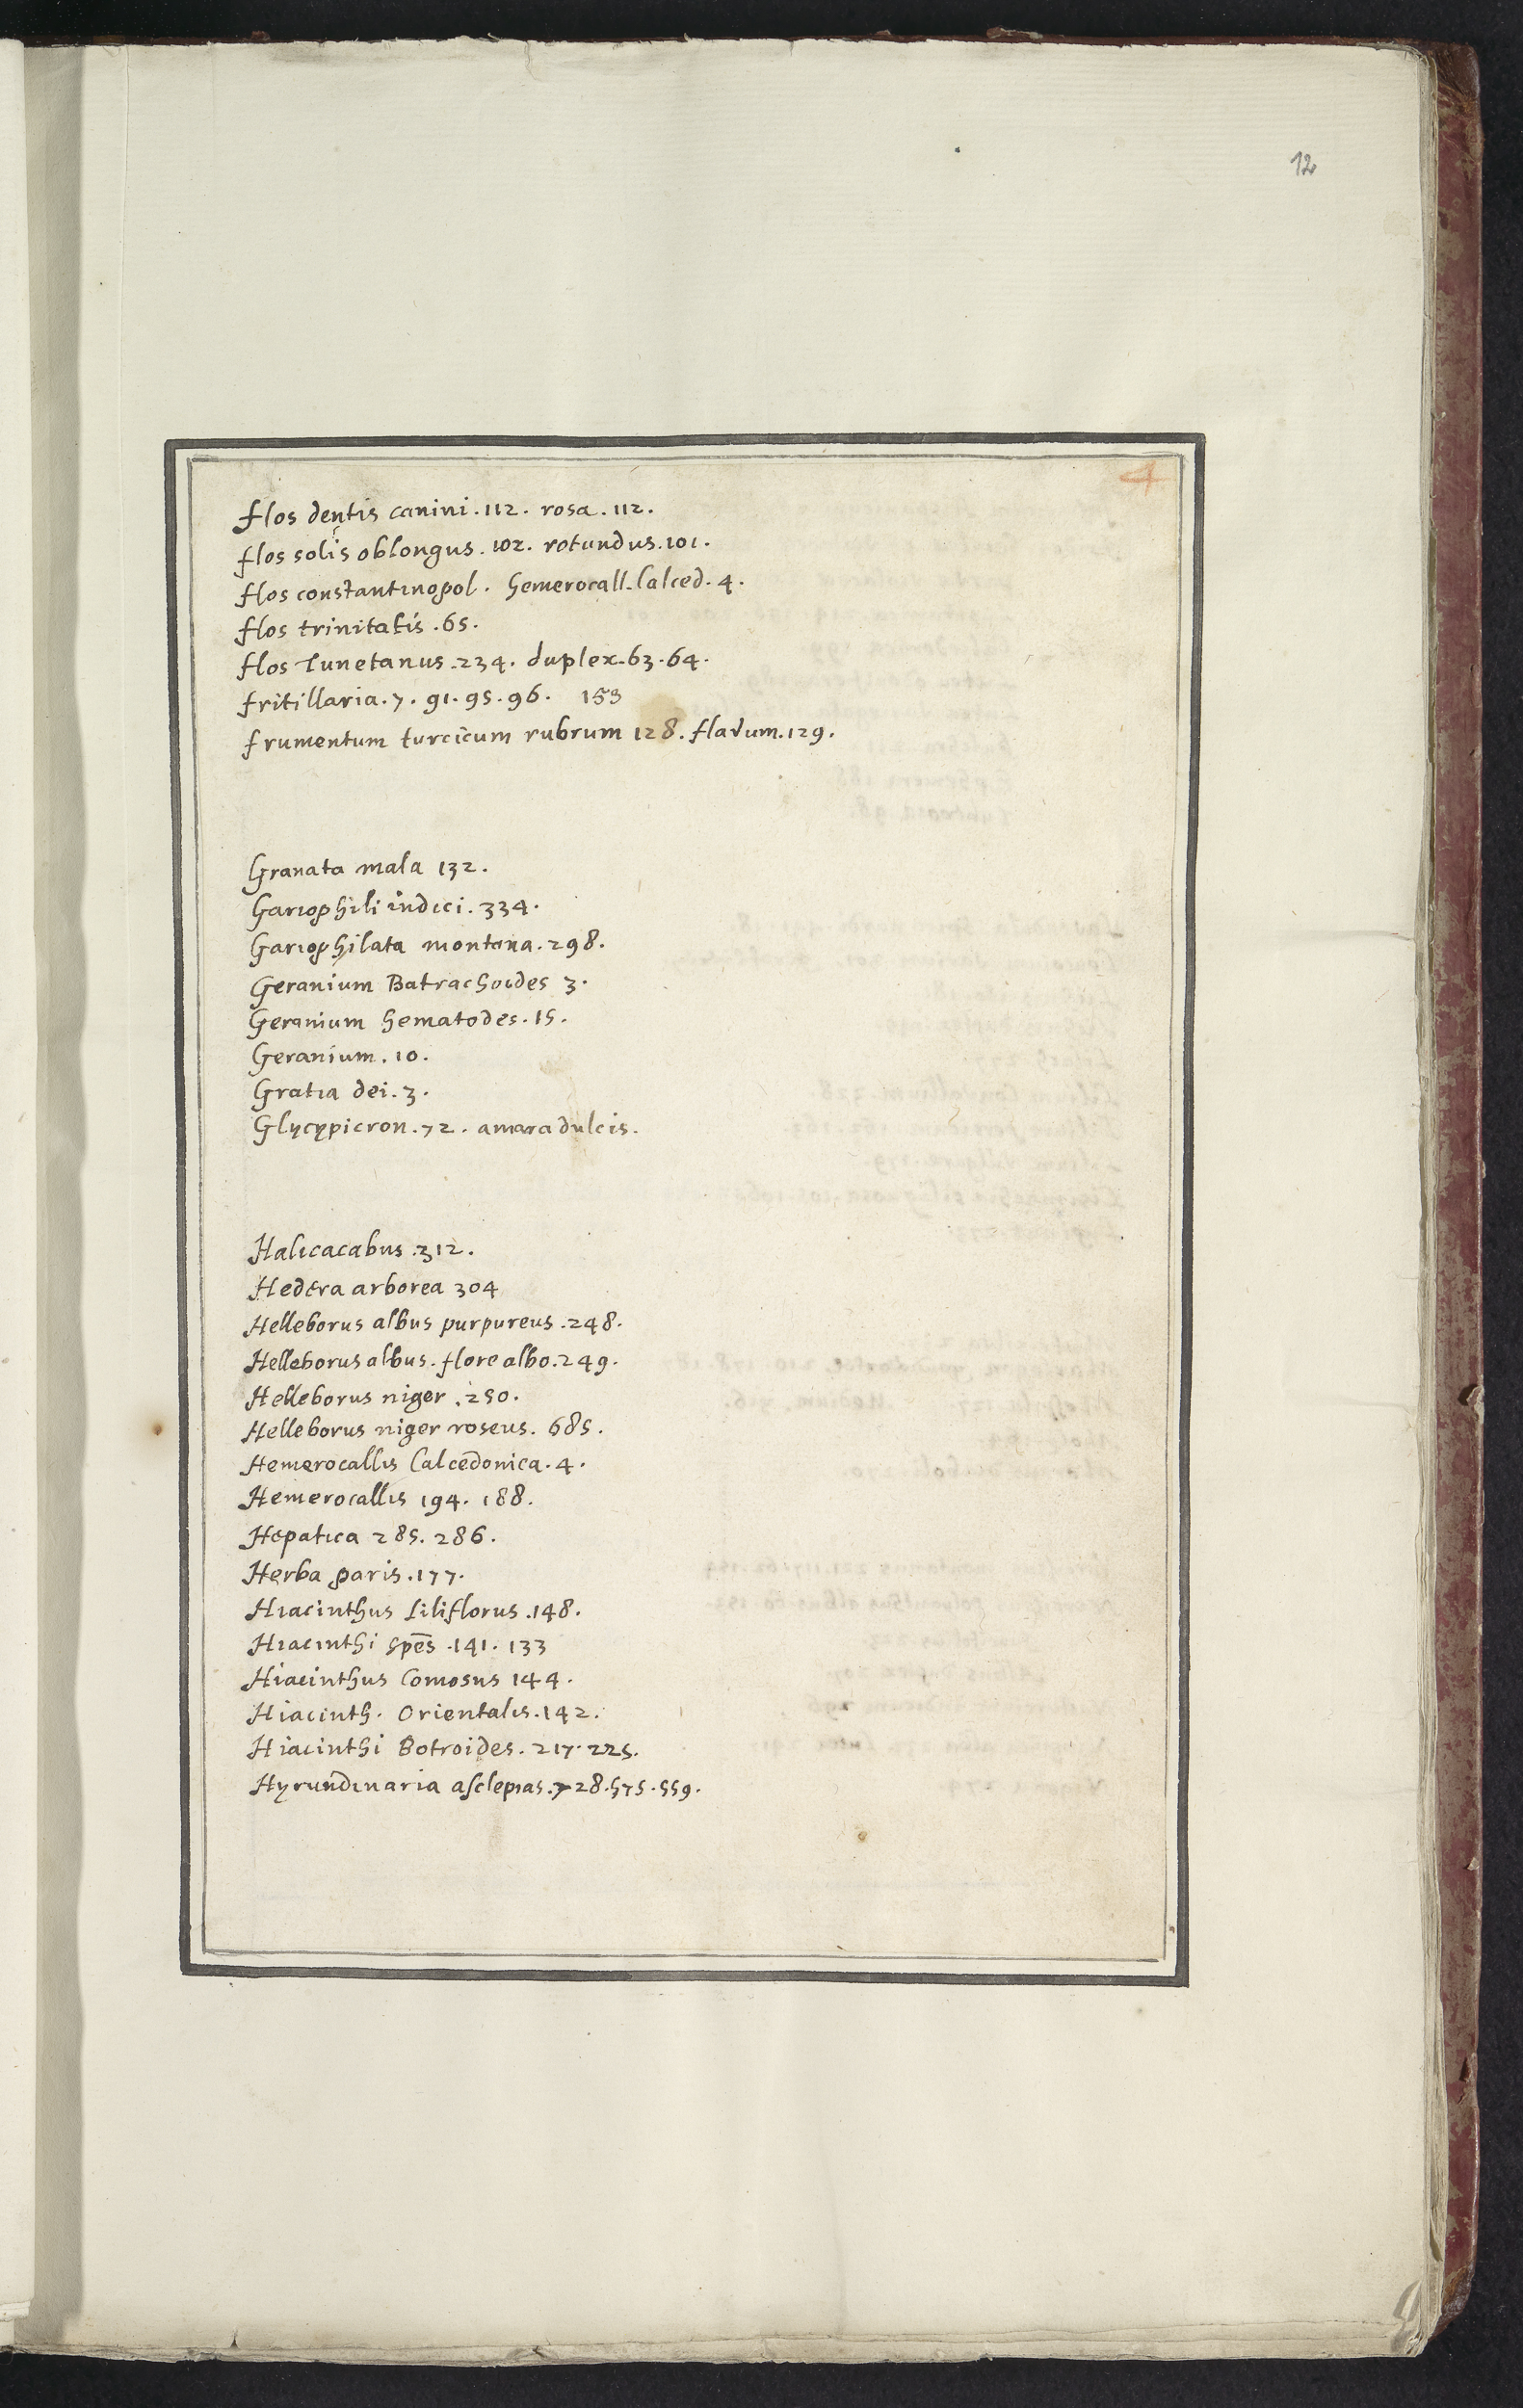 12
4
flos dentis canini . 112 . rosa . 112 .
flos solis oblongus . 102 . rotundus . 101 .
flos constantinopol . hemerocall. Calced . 4 .
flos trinitatis . 65 .
flos Tunetanus . 234 . duplex . 63 . 64 .
fritillaria . 7 . 91 . 95 . 96 . 153
frumentum turcicum rubrum 128 . flavum . 129 .
Granata mala 132 .
Gariophili indici . 334 .
Gariophilata montana . 298 .
Geranium Batrachoides 3 .
Geranium hematodes . 15 .
Geranium . 10 .
Gratia dei . 3 .
Glycypicron . 72 . amara dulcis .
Halicacabus . 312 .
Hedera arborea 304
Helleborus albus purpureus . 248 .
Helleborus albus . flore albo . 249 .
Helleborus niger . 250 .
Helleborus niger roseus . 685 .
Hemerocallis Calcedonica . 4 .
Hemerocallis 194 . 188 .
Hepatica 285 . 286 .
Herba paris . 177 .
Hiacinthus Liliflorus . 148 .
Hiacinthi spēs . 141 . 133
Hiacinthus Comosus 144 .
Hiacinth . Orientalis . 142 .
Hiacinthi Botroides . 217 . 225 .
Hyrundinaria asclepias . 728 . 575 . 559 .